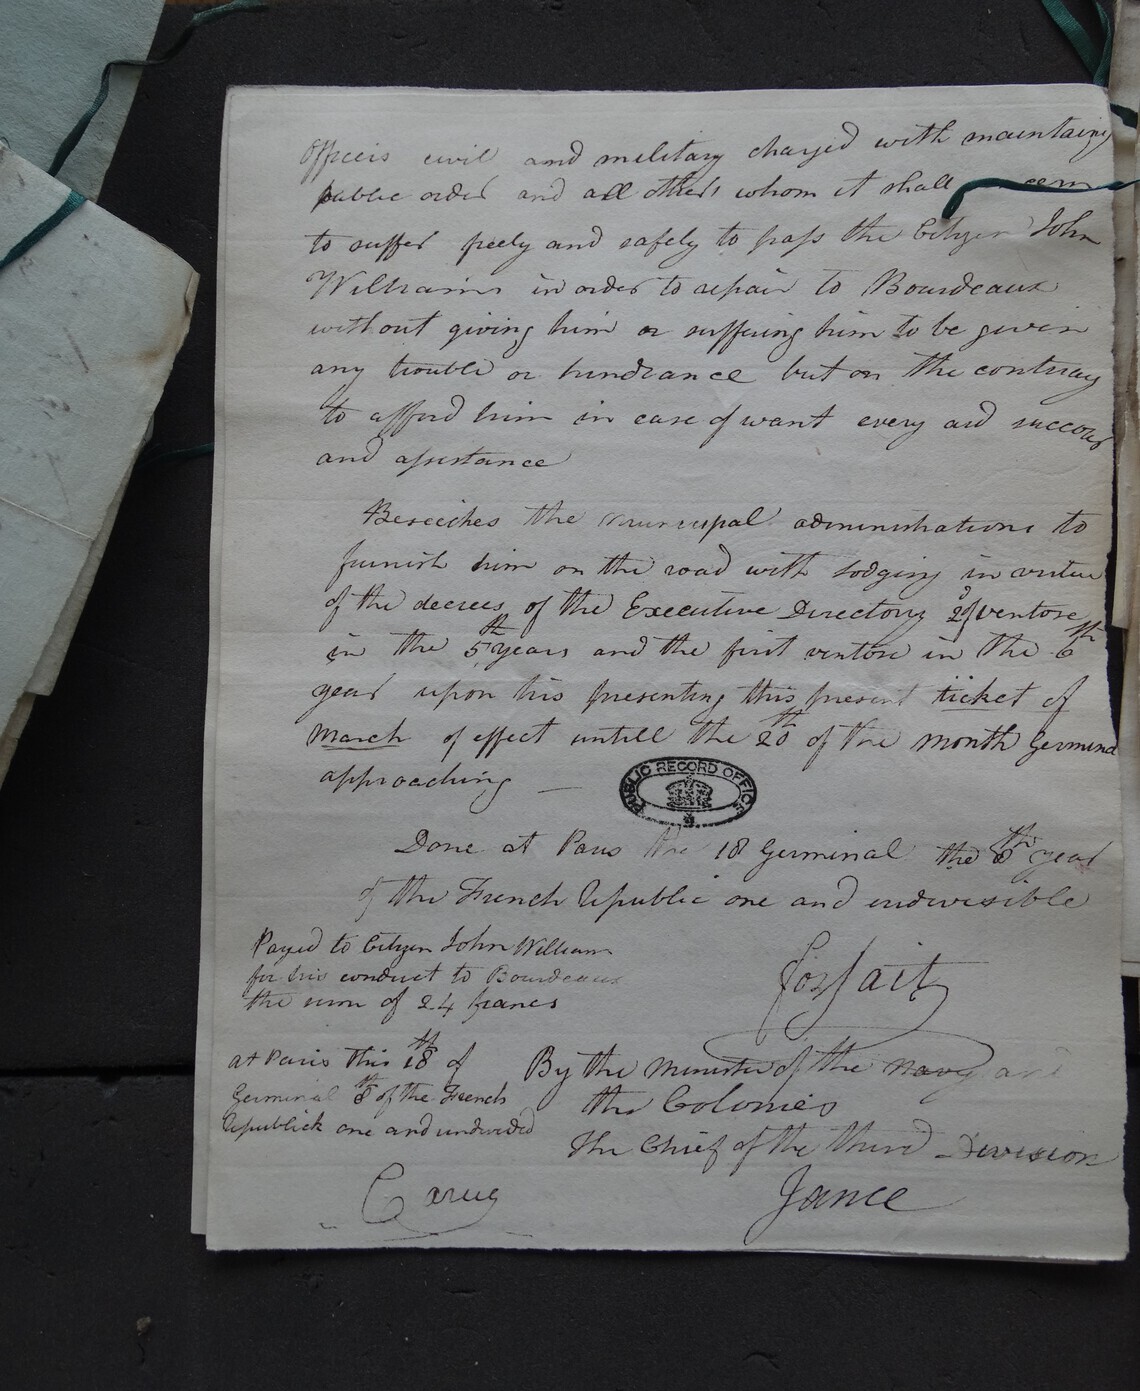 Officers civil and military charged with maintaing
public order and all others whom it shall
to suffer freely and safely to pass the Citizen John
Williams in order to repair to Bourdeaux
without giving him or suffering him to be given
any trouble or hindrance but on the contrary
to afford him in case of want every aid succour
and assistance
Beseeches the municipal administrations to
furnish him on the road with lodging in virtue
of the decrees of the Executive Directory 2d ventose
in the 5th years and the first ventose in the 6th
year upon his presenting this present ticket of
March of effect untill the 20th of the month Germinal
approaching —
PUBLIC RECORD OFFICE
Done at Paris the 18 Germinal the 8th year
of the French Republic one and indivisible
Payed to Citizen John William
for his conduct to Bourdeaux
the sum of 24 francs
Forfait
at Paris this 18th of
Germinal 8th of the French
Republick one and undivided
By the Minister of the Navy and
the Colonies
The Chief of the third Division
Jance